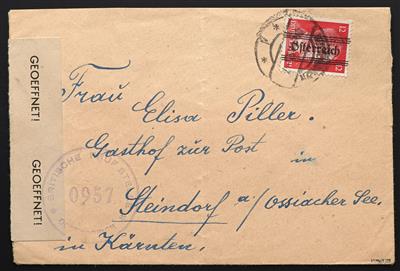 GEOEFFNET!
GEOEFFNET!
12 12
Österreich
Frau Elisa Piller.
Gasthof zur Post
in
Steindorf a/ Ossiacher See.
in Kärnten.
BRITISCHE
0957